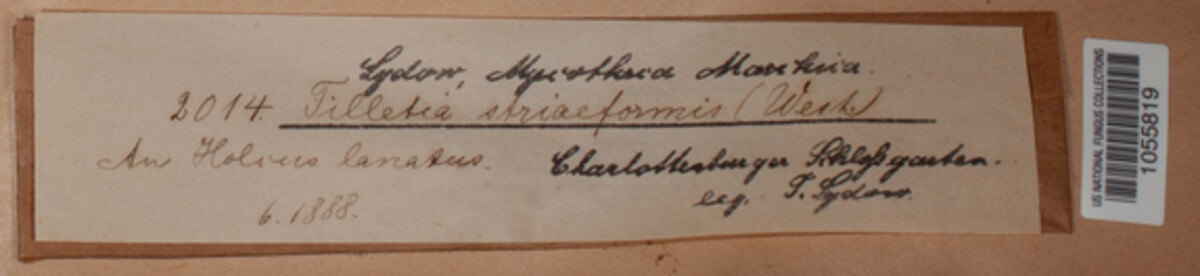 Sydow, Mycotheca Marchica.
2014. Tilletia striaeformis (West.)
An Holcus lanatus. Charlottenburger Schloßgarten.
6. 1888. leg. P. Sydow.
US NATIONAL FUNGUS COLLECTIONS
1055819